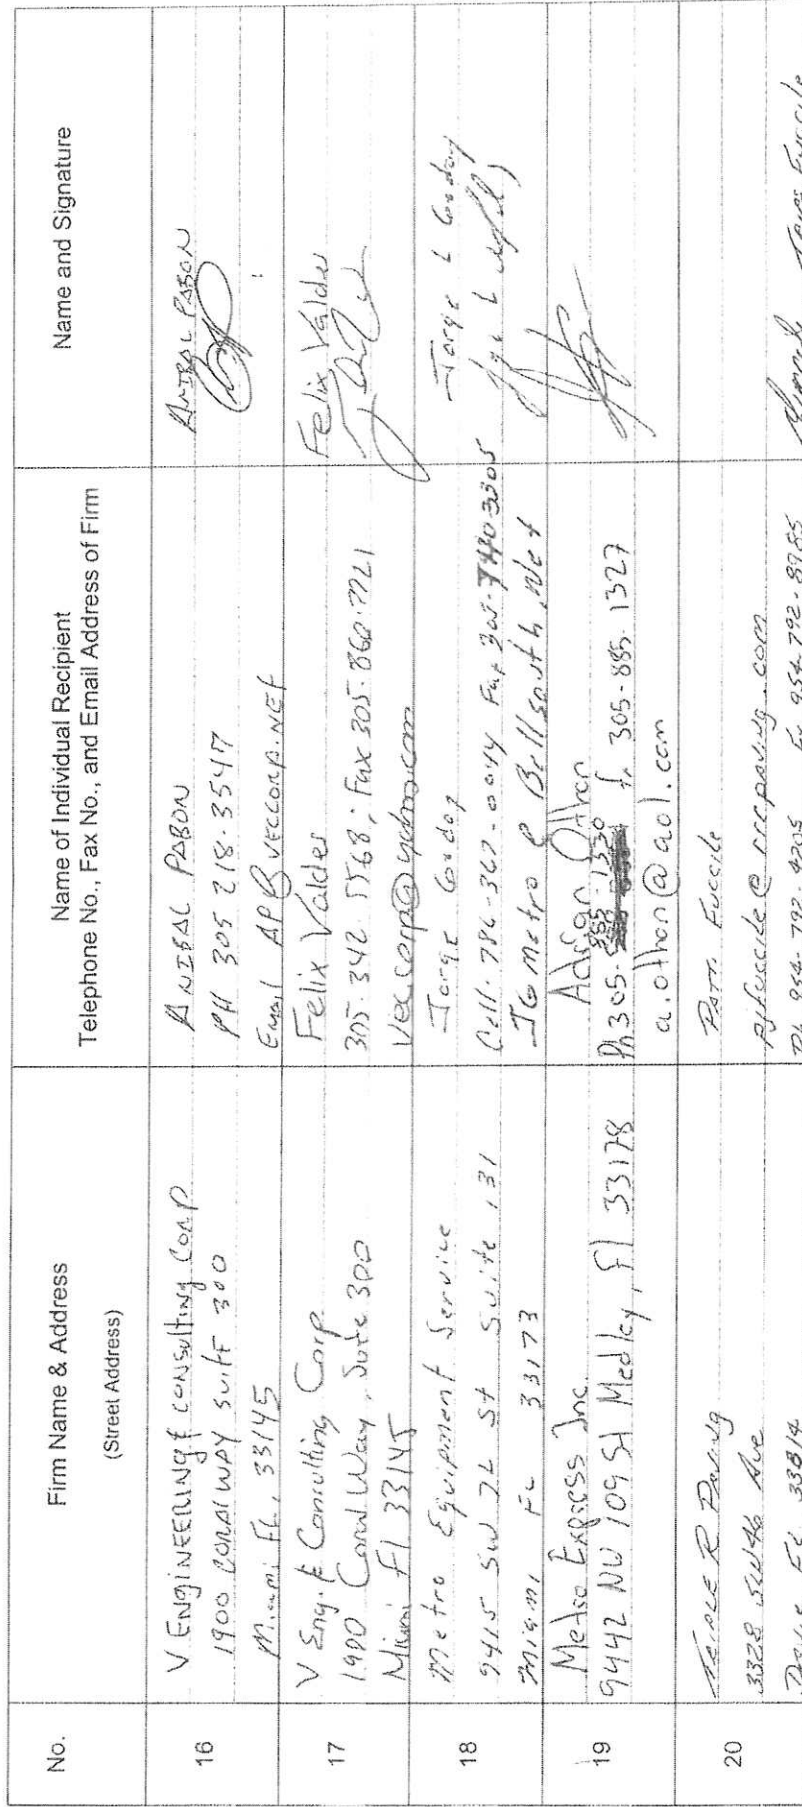 No.
Firm Name & Address
(Street Address)
Name of Individual Recipient
Telephone No., Fax No., and Email Address of Firm
Name and Signature
16
V ENGINEERING & CONSULTING CORP
1900 CORAL WAY SUITE 300
Miami FL, 33145
ANIBAL PABON
PH 305 218-3547
Email AP@VECCORP.NET
ANIBAL PABON
17
V Eng. & Consulting Corp.
1900 Coral Way, Suite 300
Miami Fl 33145
Felix Valdes
305-342 5568; Fax 305-860-7721
veccorp@yahoo.com
Felix Valdes
18
Metro Equipment Service
9415 SW 72 St Suite 131
Miami FL 33173
Jorge Godoy
Cell. 786-367-0044 Fax 305-740 3305
JGmetro@Bellsouth.Net
Jorge L Godoy
19
Metro Express Inc.
9442 NW 109 St Medley, Fl 33178
Adrian Othon
Ph 305-885-1330 fx 305-885-1327
a.othon@aol.com
20
TRIPLE R Paving
3328 SW 46 Ave
Davie FL 33314
Patti Fuccile
pjfuccile@rrrpaving.com
Ph 954-792-9205 Fx 954-792-8985
Fuccile